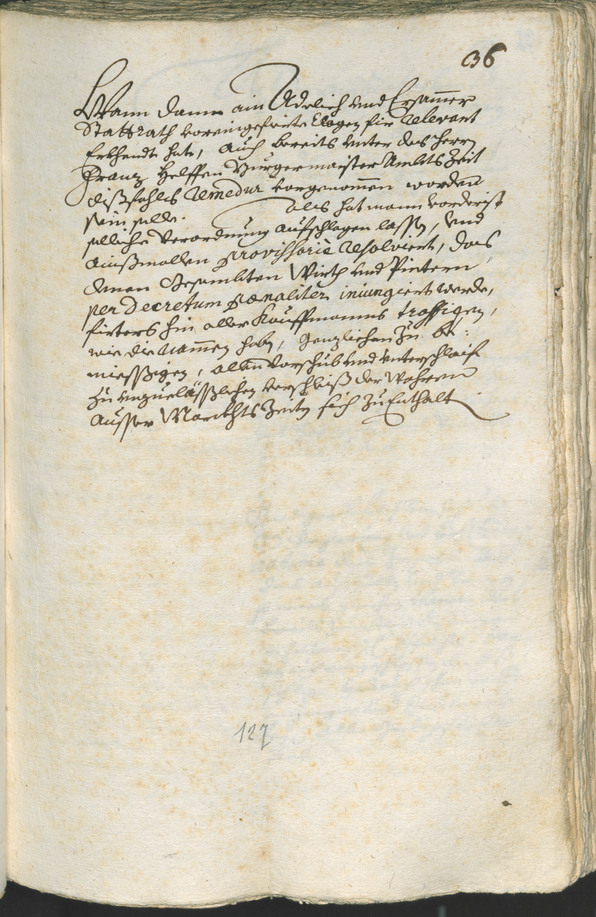 36
Wann dann ain Adelich und Ersammer
Stattrath voreingefierte Clagen für relevant
Erkhendt hat, auch bereits unter des herrn
Franz Helffen Burgermaister Ambts Zeit
dißfahls remedur vorgenommen worden
sein solle. als hat mann vorderist
solliche Verordnung aufschlagen lassen, und
ainßmallen provisorie resolviert, das
denen Gesambten Wirth und
per Decretum pœnaliter iniungiert werde,
firters hin aller Kauffmanns
wie die Nammen haben, genzlichen zu
allen vorschub und unterschlaif
zu unzuelässlichen verschleiß der Wahren
ausser Marckhts Zeiten sich zu Enthalten
127